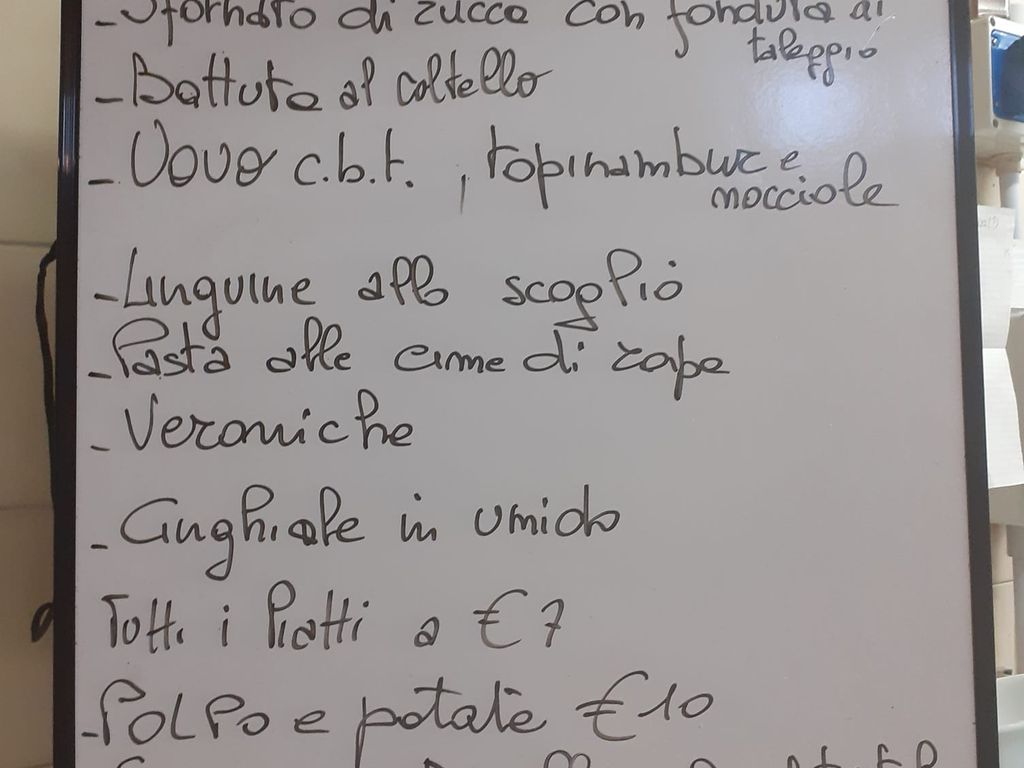 - Sfornato di zucca con fonduta di
taleggio
- Battuta al coltello
- Uovo c.b.t., topinambur e
nocciole
- Linguine allo scoglio
- Pasta alle cime di rape
- Veroniche
- Cinghiale in umido
Tutti i Piatti a € 7
- Polpo e patate € 10